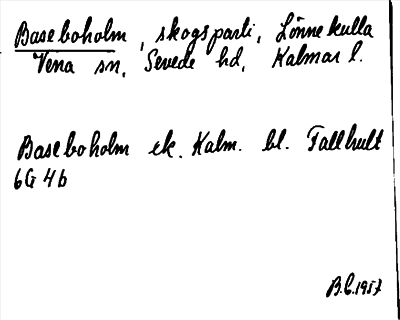 Baseboholm, skogsparti, Lönnekulla
Vena sn, Sevede hd, Kalmar l.
Baseboholm ek. Kalm. bl. Fallhult
6G 4b
B.C. 1957